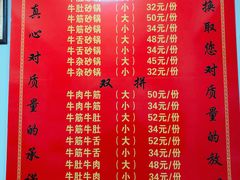 真心对质量的承
换取您对质量的放
牛肚砂锅（小）32元/份
牛筋砂锅（大）50元/份
牛筋砂锅（小）34元/份
牛舌砂锅（大）48元/份
牛舌砂锅（小）34元/份
牛杂砂锅（大）45元/份
牛杂砂锅（小）32元/份
双拼
牛肉牛筋（大）50元/份
牛肉牛筋（小）34元/份
牛筋牛肚（大）52元/份
牛筋牛肚（小）34元/份
牛筋牛舌（大）52元/份
牛筋牛舌（小）34元/份
牛肚牛肉（大）48元/份
牛肚牛肉（小）34元/份